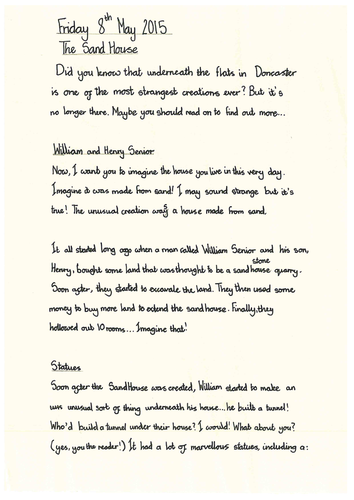 Friday 8th May 2015
The Sand House
Did you know that underneath the flats in Doncaster
is one of the most strangest creations ever? But it's
no longer there. Maybe you should read on to find out more...
William and Henry Senior
Now, I want you to imagine the house you live in this very day.
Imagine it was made from sand! I may sound strange but it's
true! The unusual creation was a house made from sand.
It all started long ago when a man called William Senior and his son,
Henry, bought some land that was thought to be a sandhouse stone quarry.
Soon after, they started to excavate the land. They then used some
money to buy more land to extend the sandhouse. Finally, they
hollowed out 10 rooms... Imagine that!
Statues
Soon after the SandHouse was created, William started to make an
unusual sort of thing underneath his house... he built a tunnel!
Who'd build a tunnel under their house? I would! What about you?
(yes, you the reader!) It had a lot of marvellous statues, including a: